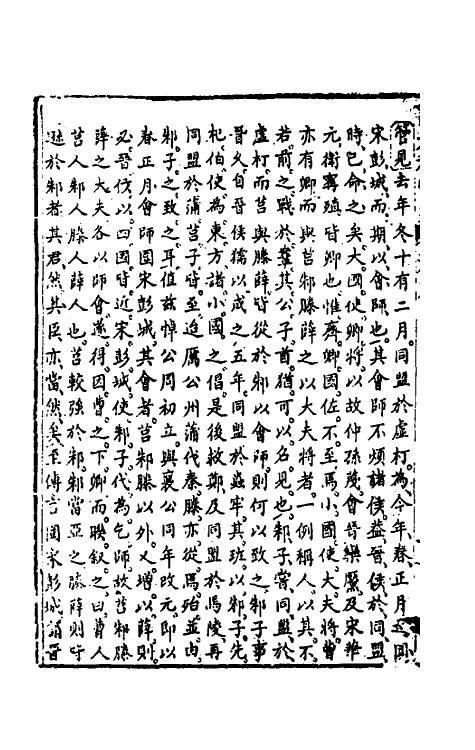 嘗見去年冬十有二月同盟於虛朾為今年春正月之圍
宋彭城而期以會師也其會師不煩諸侯蓋晉侯於同盟
時已命之矣大國使卿將以故仲孫蔑會晉欒黶及宋華
元衛甯殖皆卿也惟齊卿國佐不至焉小國使大夫將曹
亦有卿而與莒邾滕薛之以大夫將者一例稱人以其不
若前之戰於鞌其公子首猶可以名見也邾子當同盟於
虛朾而莒與滕薛皆從於邾以會師則何以致之邾子事
晉久自晉侯獳以成之五年同盟於蟲牢其班以邾子先
杞伯使為東方諸小國之倡是後救鄭及同盟於馬陵再
同盟於蒲莒子皆至迨厲公州蒲代秦滕亦從焉殆並由
邾子之致之耳值茲悼公周初立與襄公同年改元即以
春正月會師圍宋彭城其會者莒邾滕以外又增以薛則
必晉伐以四國皆近宋彭城使邾子代為乞師故莒邾滕
薛之大夫各以師會遂得因曹之下卿而聯敘之曰曹人
莒人邾人滕人薛人也莒較強於邾邾當亞之滕薛則呼
於邾者其君然其臣亦當然矣至傳言圍宋彭城謂晉